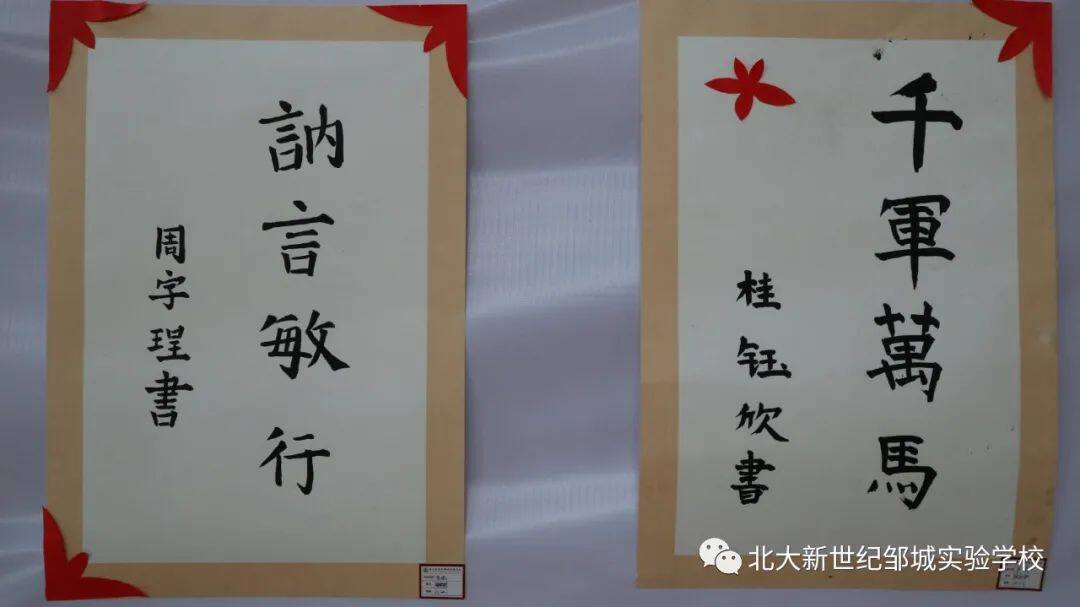 訥言敏行
周字珵書
千軍萬馬
桂钰欣書
北大新世纪邹城实验学校